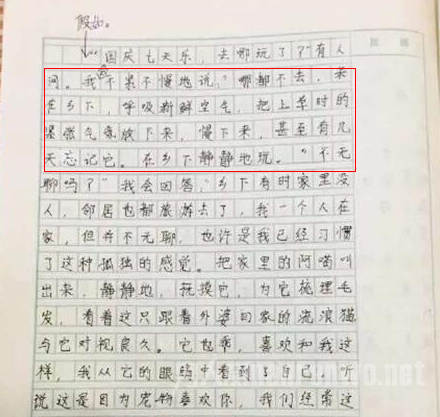 假如。
国庆七天乐,去哪玩了?"有人
问。我不紧不慢地说,"哪都不去,呆
在乡下,呼吸新鲜空气,把上草时的
紧张气氛放下来,慢下来,甚至有几
天忘记它。在乡下静静地玩。""不无
聊吗?"我会回答,"乡下有时家里没
人,邻居也都旅游去了,我一个人在
家,但并不无聊,也许是我已经习惯
了这种孤独的感觉。把家里的阿喵叫
出来,静静地,抚摸它,为它梳理毛
发,看着这只跟着外婆回家的流浪猫
与它对视良久。它也乖,喜欢和我这
样,我从它的眼睛中看到了自己。听
说这是因为宠物喜欢你,我们经常这